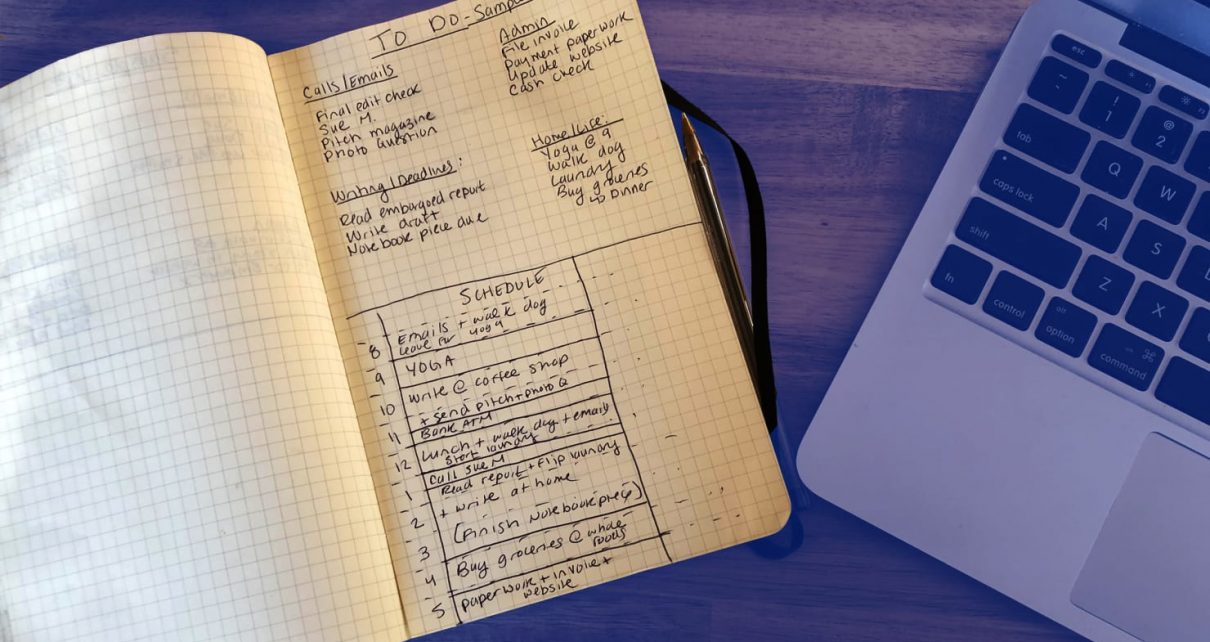 TO DO - Sample
Calls/Emails
Final edit check
Sue M.
Pitch magazine
Photo question
Writing/Deadlines:
Read embargoed report
Write draft
Notebook piece due
Admin
File invoice
Payment paperwork
Update website
Cash check
Home/Life:
Yoga @ 9
Walk dog
Laundry
Buy groceries
↳ Dinner
SCHEDULE
8 Emails + walk dog
leave for yoga
9 YOGA
10 write @ coffee shop
+ send pitch + photo Q
11 Bank ATM
12 Lunch + walk dog + email
start laundry
Call Sue M
1 Read report + flip laundry
2 + write at home
3 (Finish Notebook piece)
4 Buy groceries @ whole
foods
5 paperwork + invoice +
website
esc
~
`
!
1
@
2
tab
Q
W
caps lock
A
S
shift
Z
X
fn
control
alt
option
⌘
command